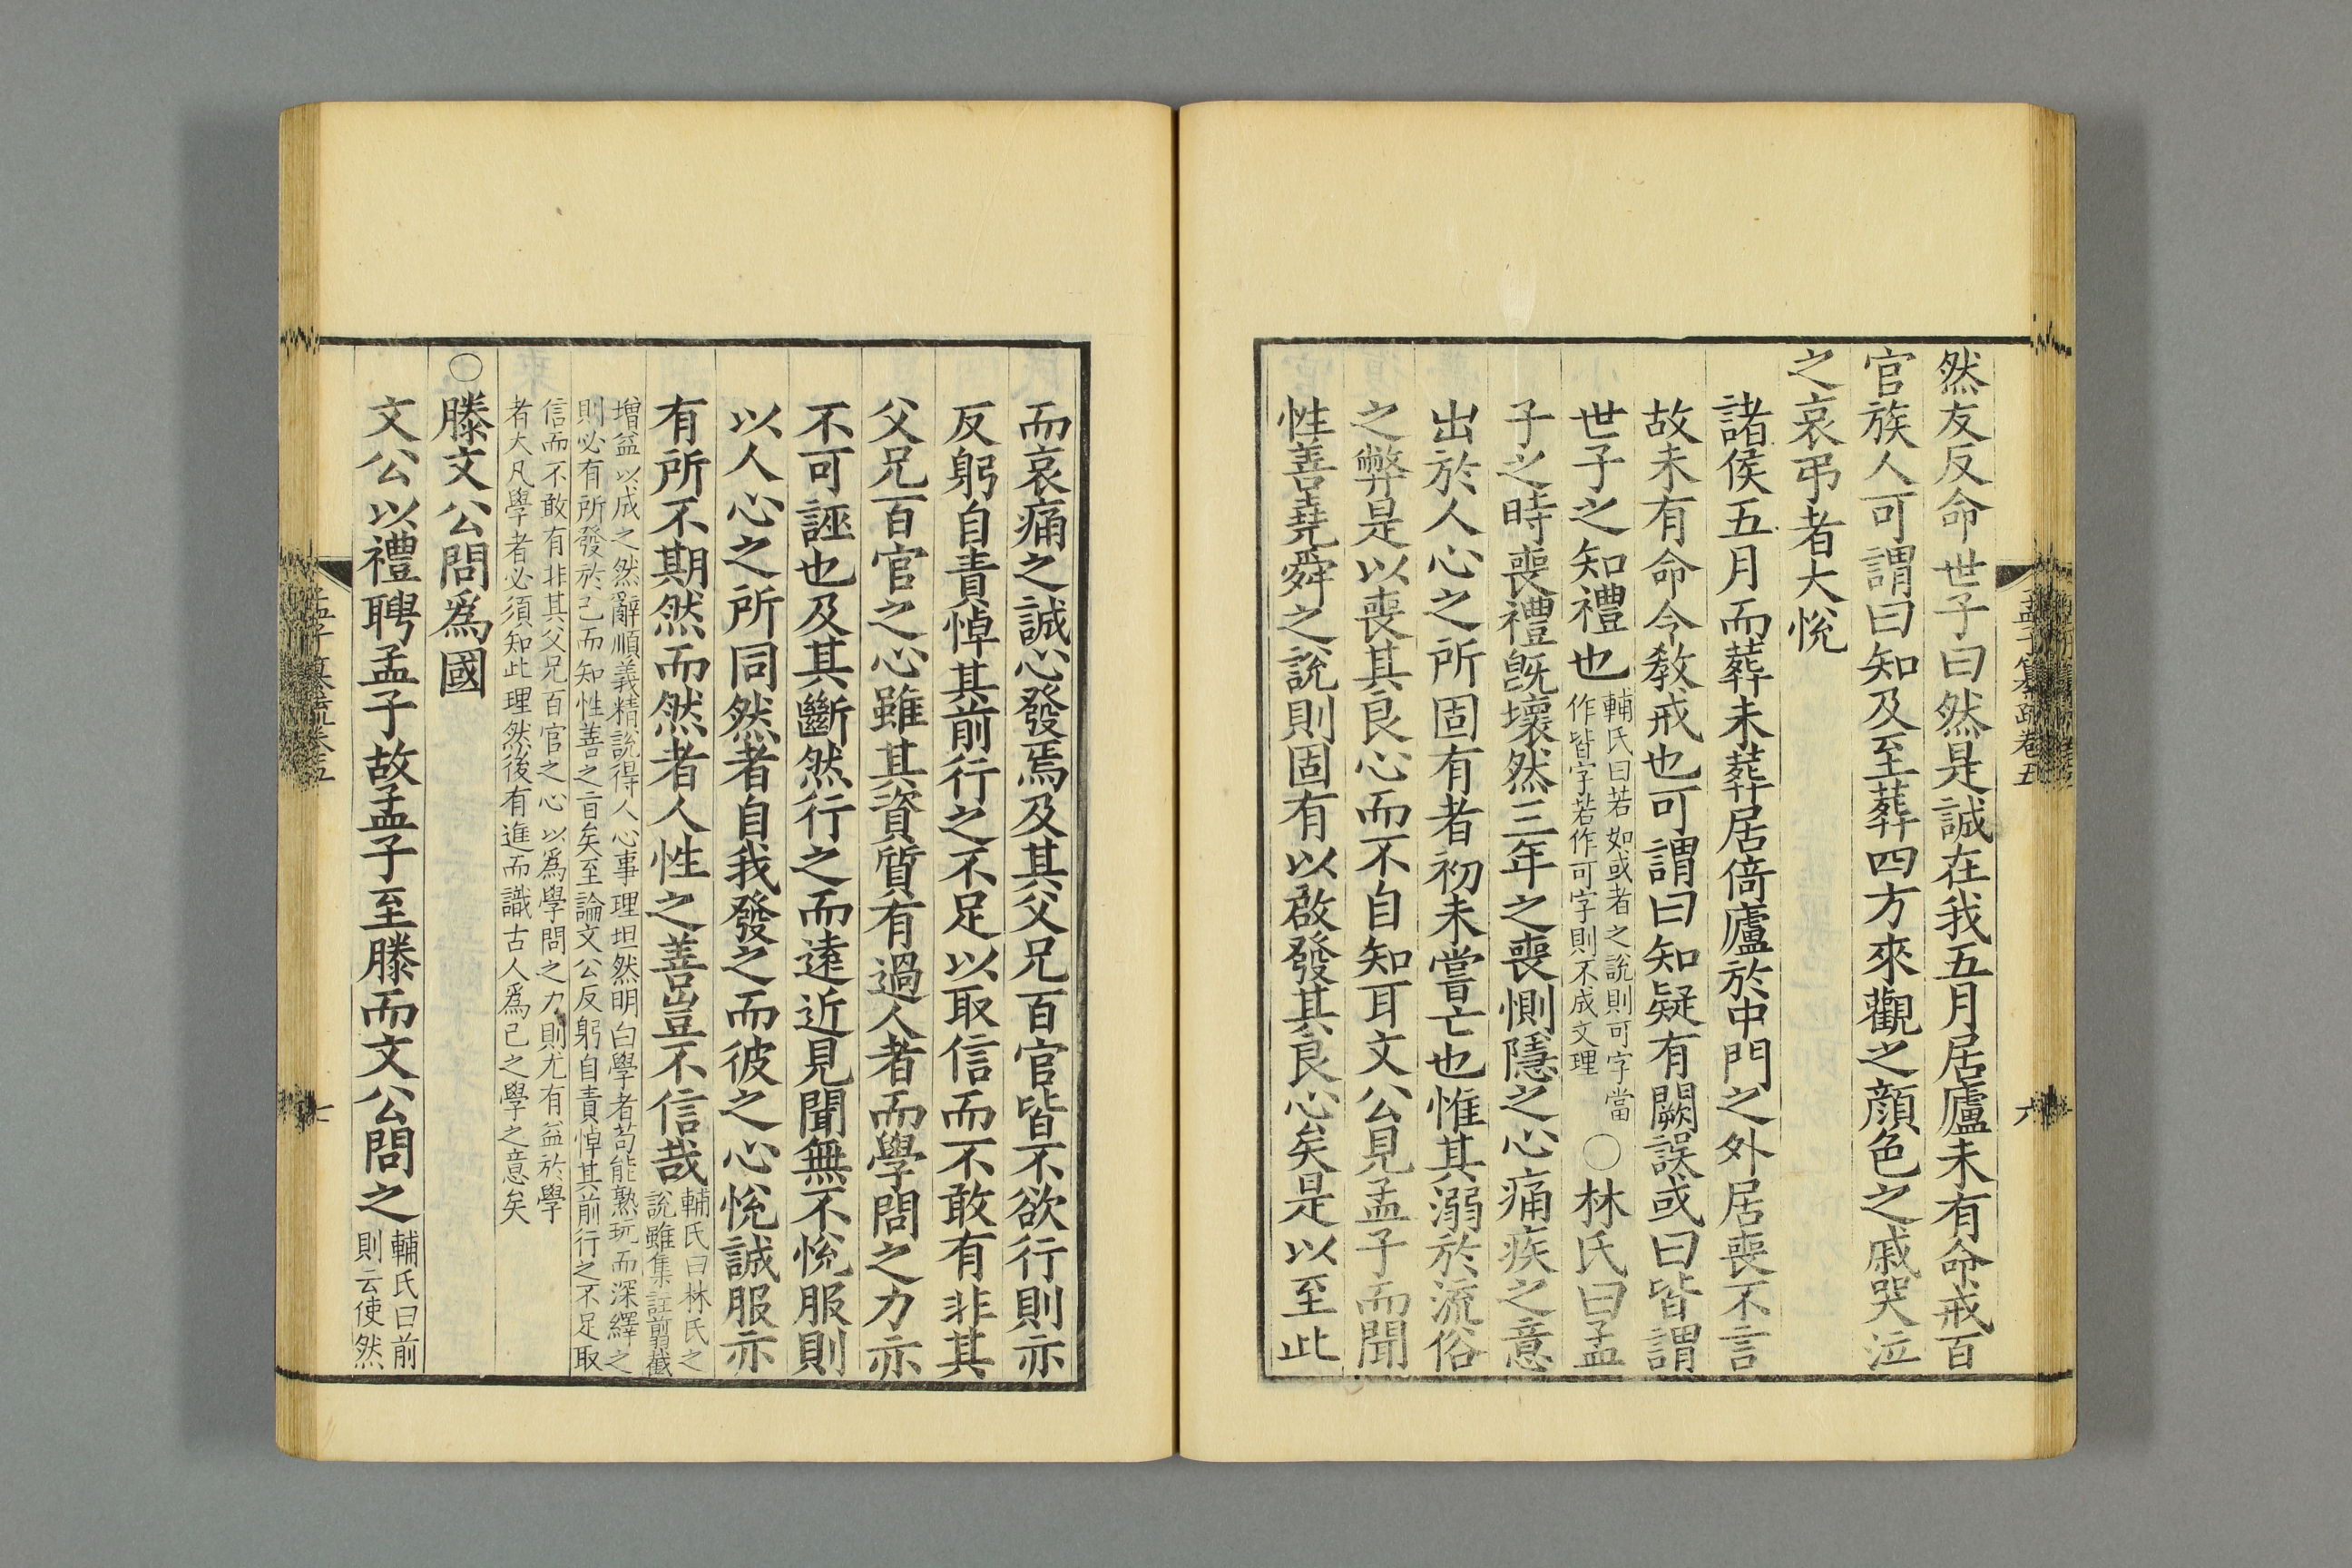 然友反命世子曰然是誠在我五月居廬未有命戒百
官族人可謂曰知及至葬四方來觀之顔色之戚哭泣
之哀弔者大悅
諸侯五月而葬未葬居倚廬於中門之外居喪不言
故未有命令敎戒也可謂曰知疑有闕誤或曰皆謂
世子之知禮也
輔氏曰若如或者之說則可字當
作皆字若作可字則不成文理
○林氏曰孟
子之時喪禮旣壞然三年之喪惻隱之心痛疾之意
出於人心之所固有者初未嘗亡也惟其溺於流俗
之弊是以喪其良心而不自知耳文公見孟子而聞
性善堯舜之說則固有以啟發其良心矣是以至此
孟子纂疏卷五
六
而哀痛之誠心發焉及其父兄百官皆不欲行則亦
反躬自責悼其前行之不足以取信而不敢有非其
父兄百官之心雖其資質有過人者而學問之力亦
不可誣也及其斷然行之而遠近見聞無不悅服則
以人心之所同然者自我發之而彼之心悅誠服亦
有所不期然而然者人性之善豈不信哉
輔氏曰林氏之
說雖集註剪截
增益以成之然辭順義精說得人心事理坦然明白學者苟能熟玩而深繹之
則必有所發於己而知性善之㫖矣至論文公反躬自責悼其前行之不足取
信而不敢有非其父兄百官之心以爲學問之力則尤有益於學
者大凡學者必須知此理然後有進而識古人爲己之學之意矣
○滕文公問爲國
文公以禮聘孟子故孟子至滕而文公問之
輔氏曰前
則云使然